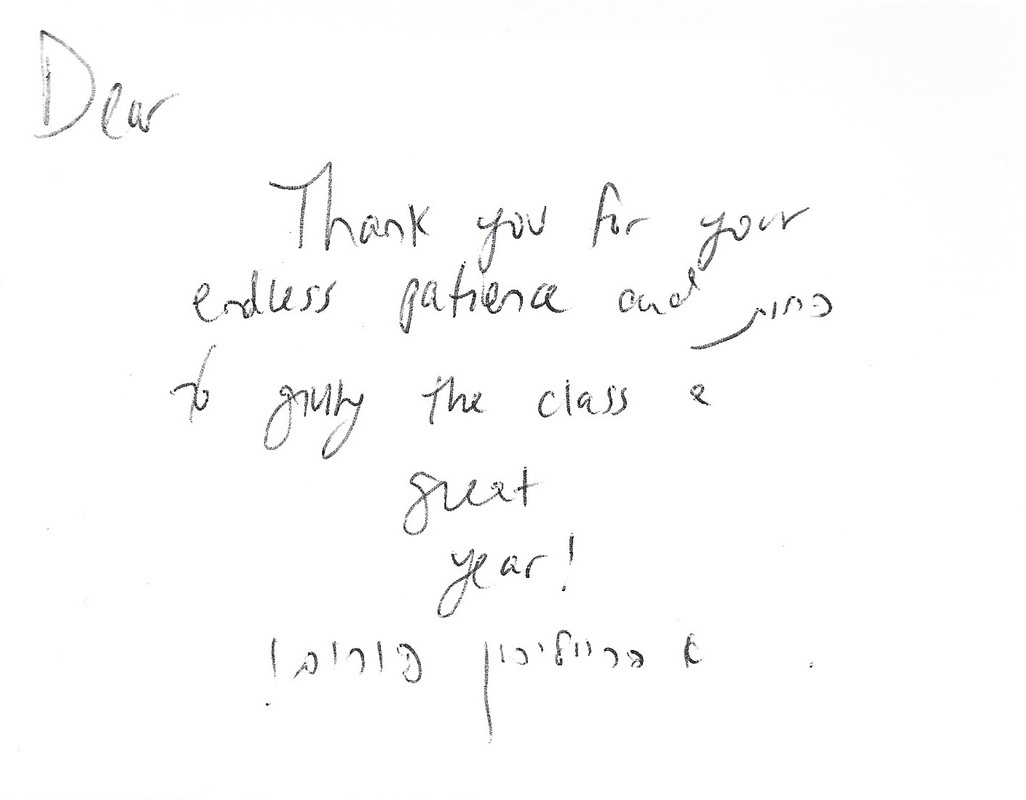 Dear
Thank you for your
endless patience and כחות
to giving the class a
great
year!
א פרייליכין פורים!